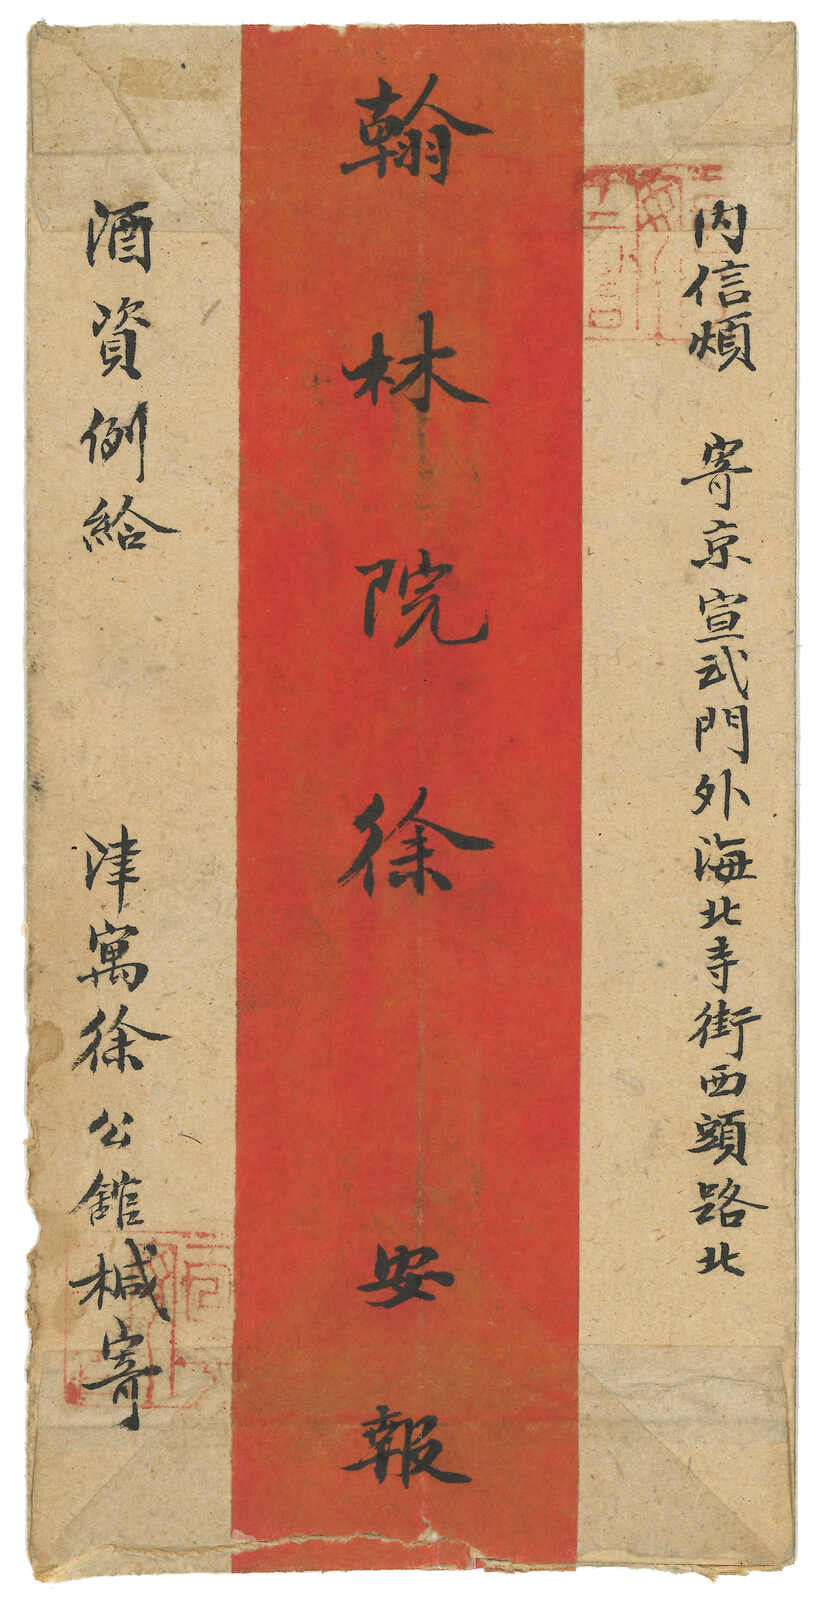 內信煩 寄京宣武門外海北寺街西頭路北
翰林院徐 安報
酒資例給 津寓徐公館椷寄